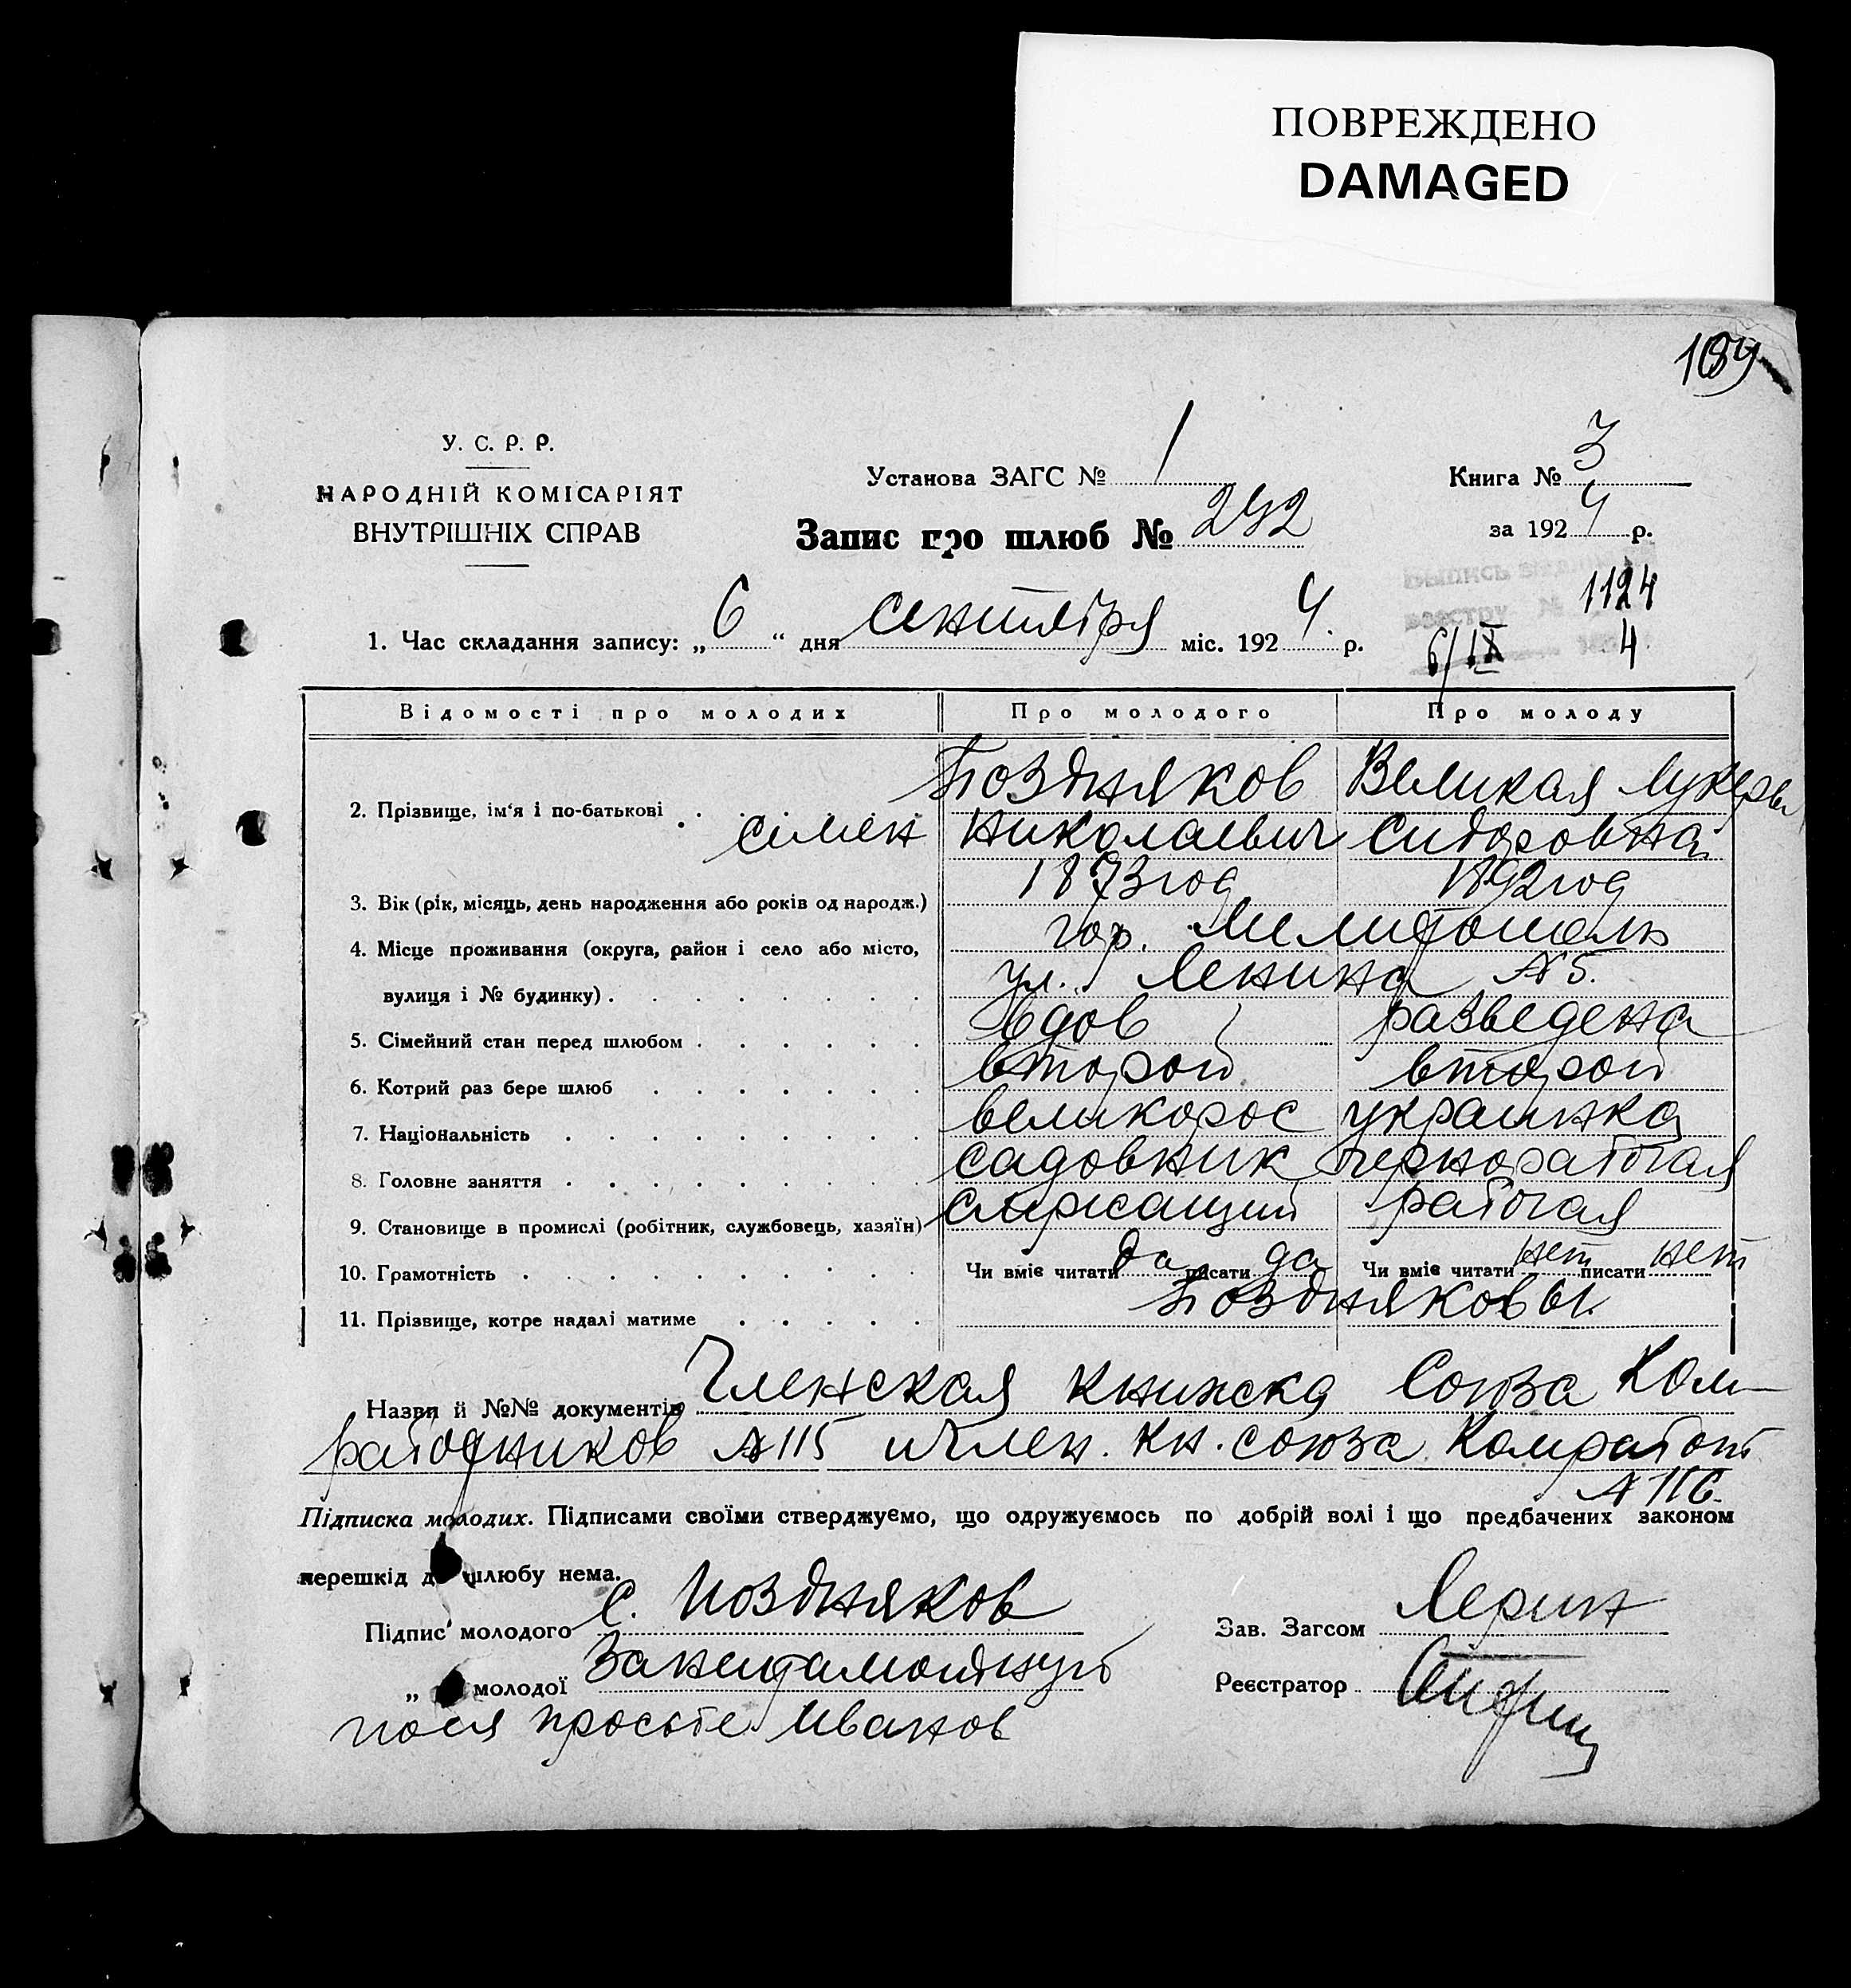 ПОВРЕЖДЕНО
DAMAGED
У. С. Р. Р.
НАРОДНІЙ КОМІСАРІЯТ
ВНУТРІШНІХ СПРАВ
Установа ЗАГС № 1
Запис про шлюб № 292
Книга № 3
за 1924 р.
1124
6/IX 4
1. Час складання запису: „6“ дня сентября міс. 1924. р.
Відомості про молодих Про молодого Про молоду
2. Прізвище, ім'я і по-батькові Поздняков Великая Лукерья
Симен Николаевич Сидоровна
3. Вік (рік, місяць, день народження або років од народж.) 1873 год 1892 год
4. Місце проживання (округа, район і село або місто, гор. Мелитополь
вулиця і № будинку) ул. Ленина № 5.
5. Сімейний стан перед шлюбом вдов разведена
6. Котрий раз бере шлюб второй второй
7. Національність великорос украинка
8. Головне заняття садовник чернорабочая
9. Становище в промислі (робітник, службовець, хазяїн) служащий рабочая
10. Грамотність Чи вміє читати да писати да Чи вміє читати нет писати нет
11. Прізвище, котре надалі матиме Поздняковы.
Назви й №№ документів Членская книжка Союза Ком-
работников № 115 и член. кн. союза Комработ
№ 116.
Підписка молодих. Підписами своїми стверджуємо, що одружуємось по добрій волі і що предбачених законом
перешкід до шлюбу нема.
Підпис молодого С. Поздняков
Зав. Загсом
„ молодої За неграмотную
Реєстратор
просьбе Иванов